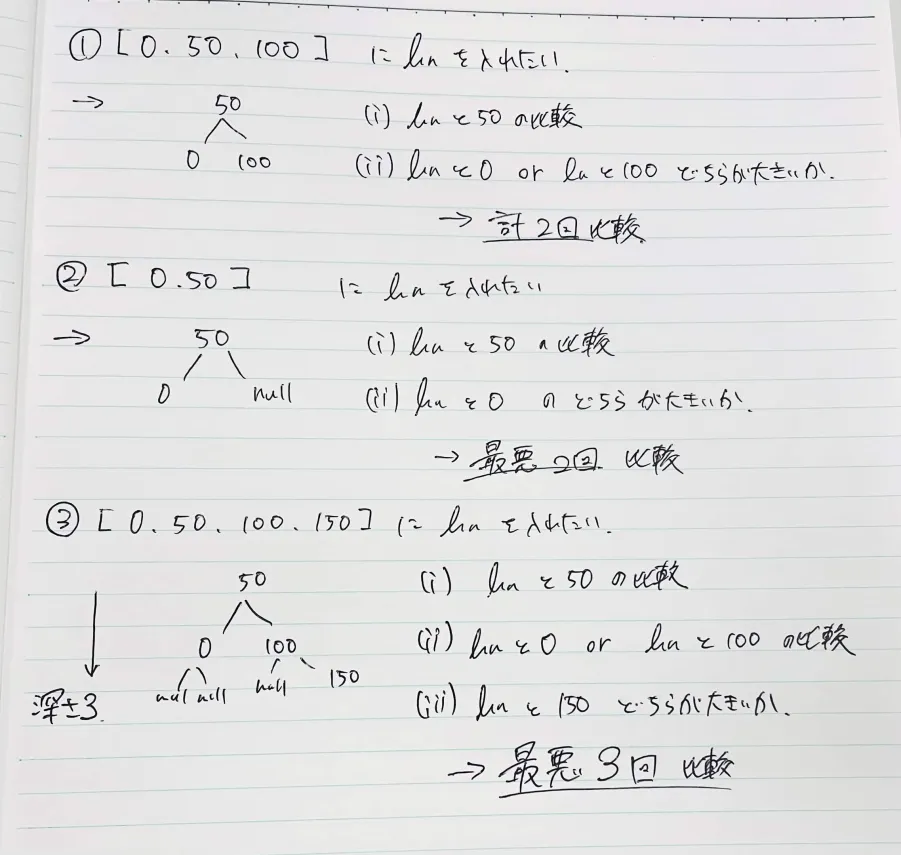 ① [0. 50. 100] に hn を入れたい.
→ 50
0 100
(i) hn と 50 の比較
(ii) hn と 0 or hn と 100 どちらが大きいか.
→ 計2回比較
② [0.50] に hn を入れたい
→ 50
0 null
(i) hn と 50 の比較
(ii) hn と 0 のどちらが大きいか.
→ 最悪2回 比較
③ [0. 50. 100. 150] に hn を入れたい.
50
0 100
null null null 150
深さ3
(i) hn と 50 の比較
(ii) hn と 0 or hn と 100 の比較
(iii) hn と 150 どちらが大きいか.
→ 最悪3回 比較